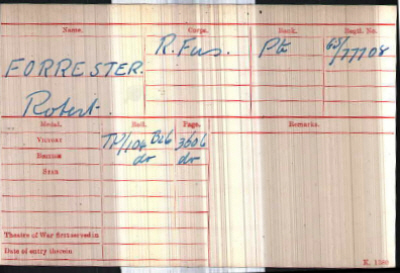 Name. Corps. Rank. Regtl. No.
FORRESTER. R. Fus. Pte GS/77708
Robert.
Medal. Roll. Page. Remarks.
Victory TP/104 B26 3606
British do do
Star
Theatre of War first served in
Date of entry therein
K. 1380